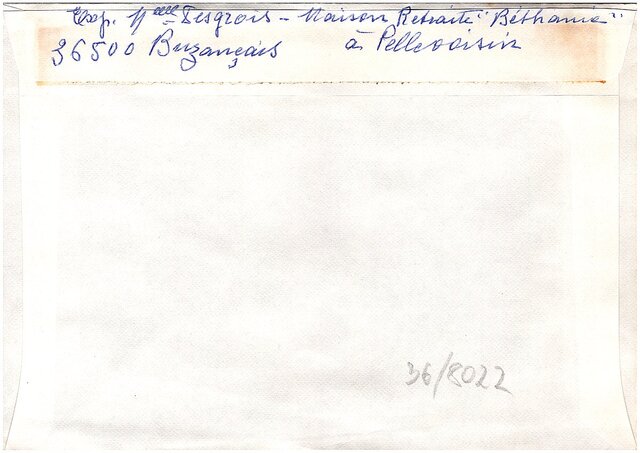 Exp. Melle Desgrois - Maison Retraite "Béthanie"
36500 Buzançais à Pellevoisin
36/8022